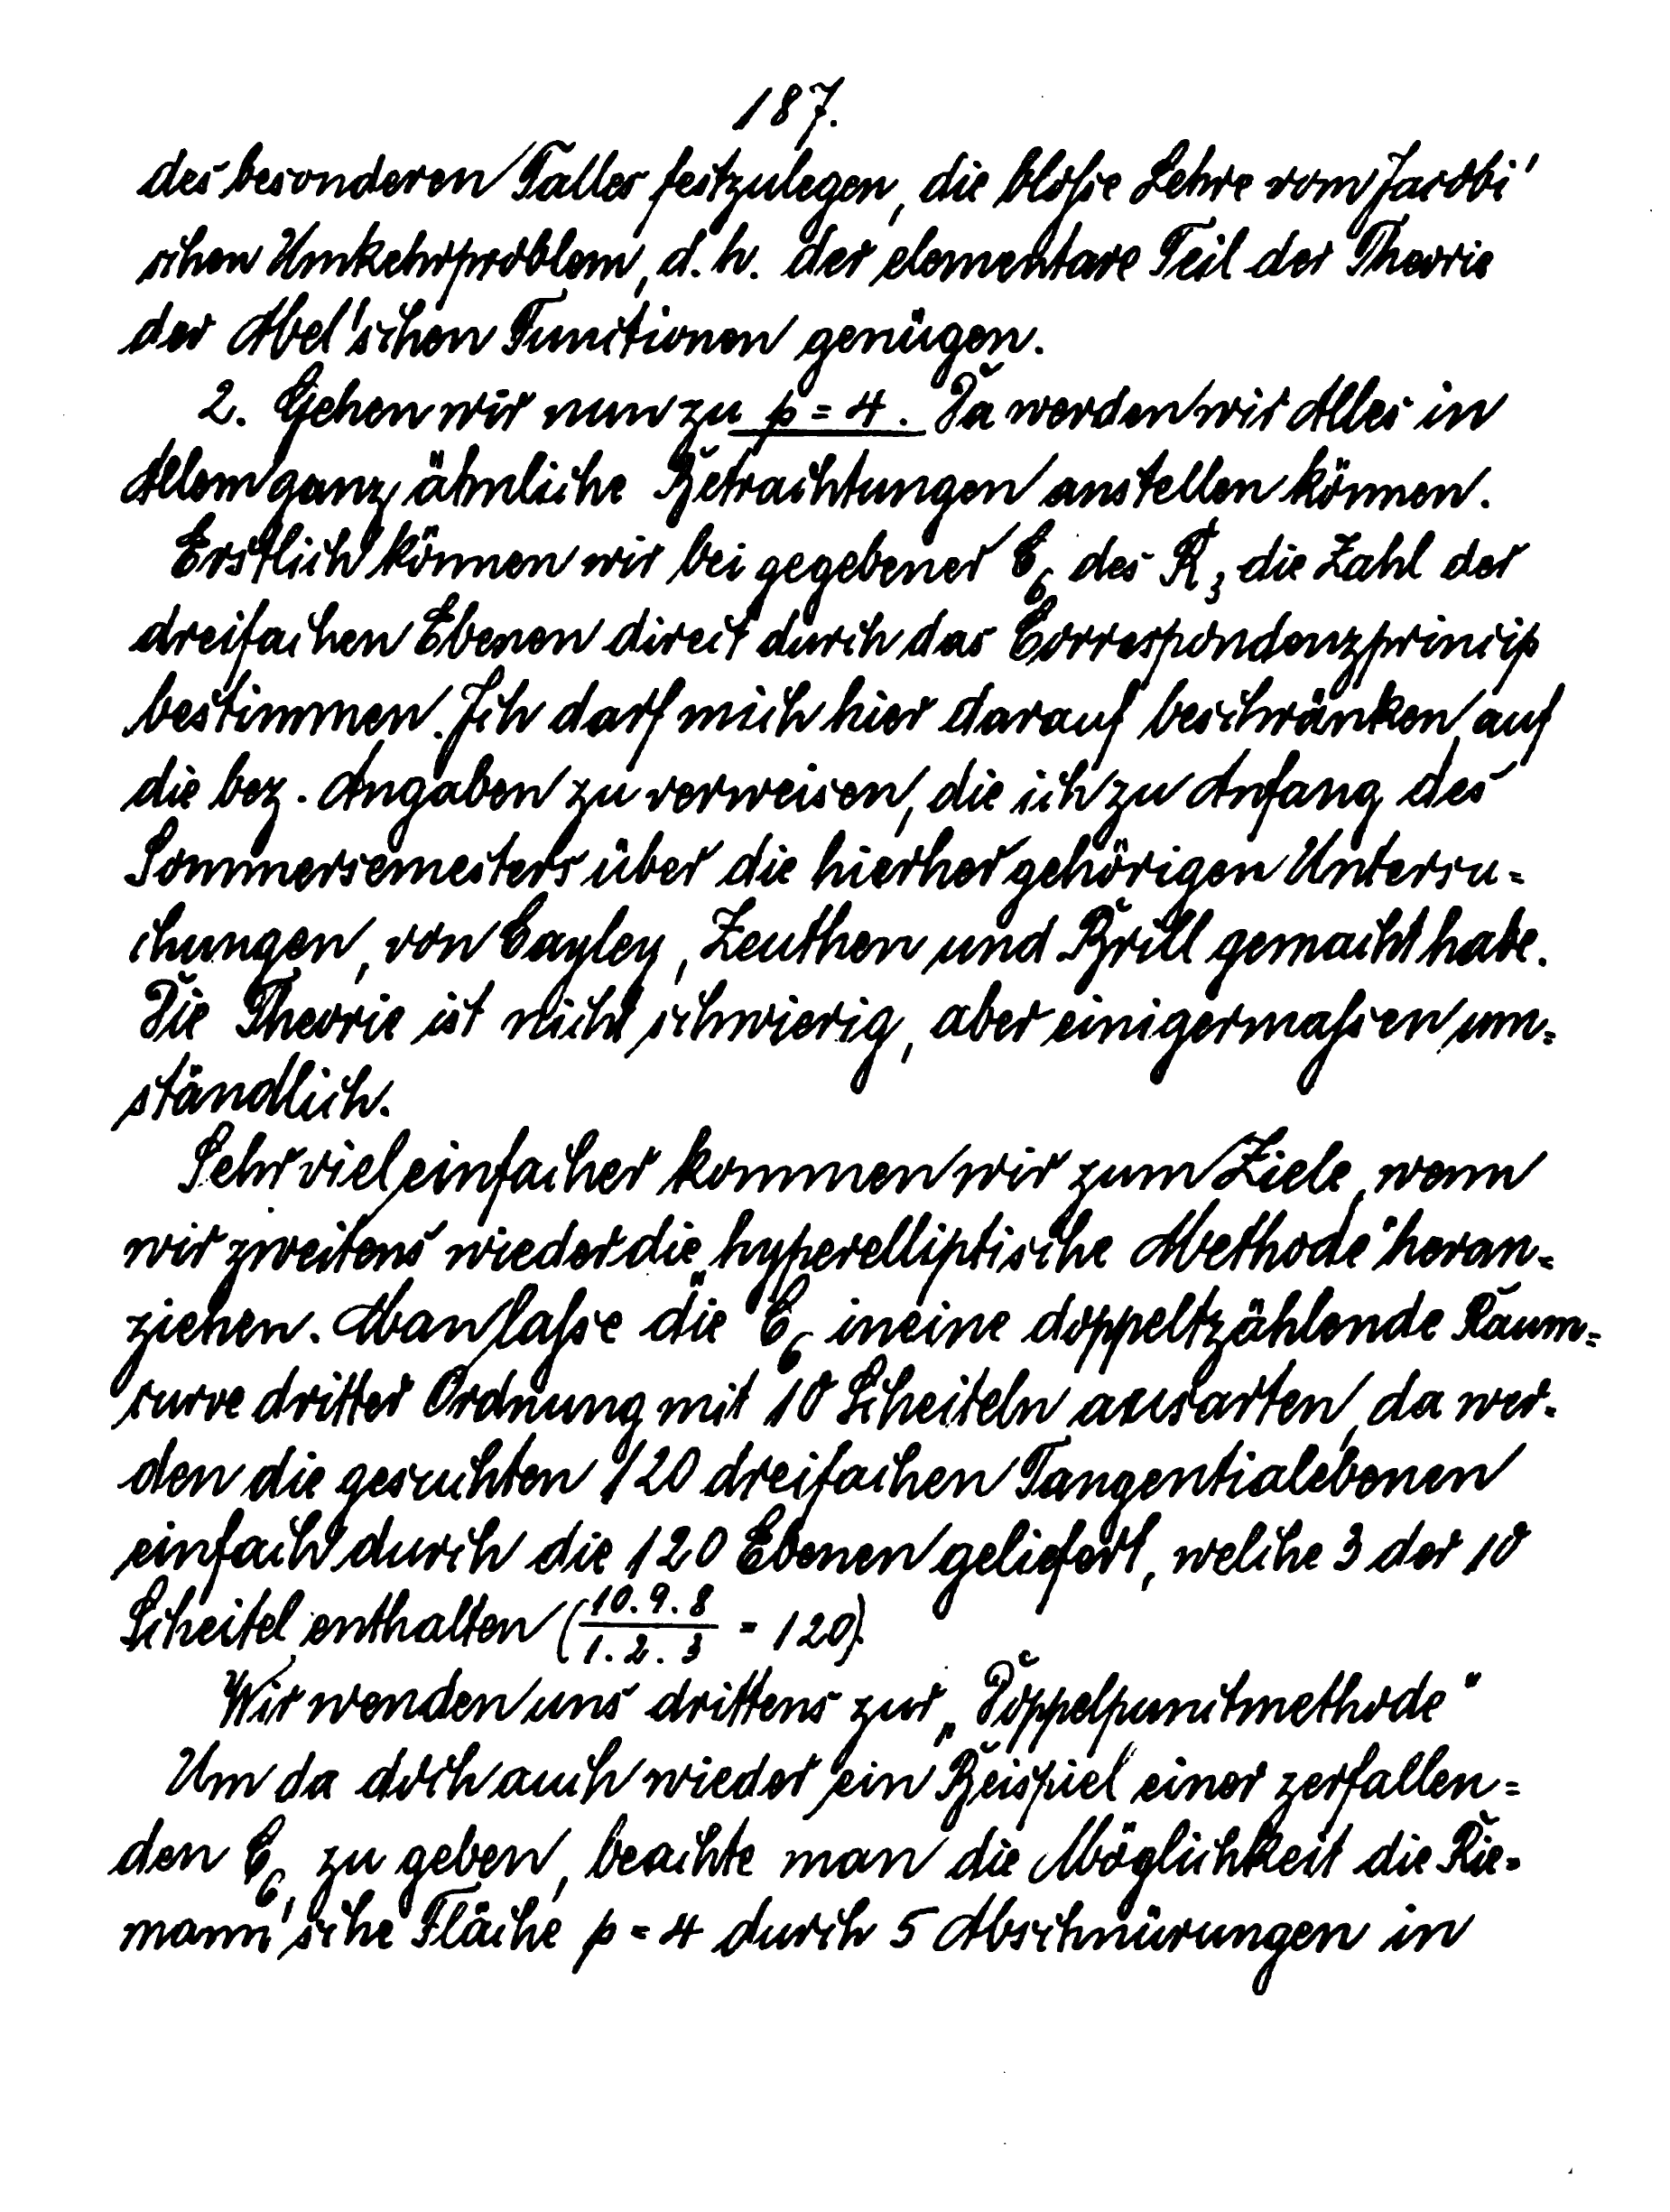 187.
des besonderen Falles festzulegen, die bloße Lehre vom Jacobi'
schen Umkehrproblem, d. h. der elementare Teil der Theorie
der Abel'schen Functionen genügen.
2. Gehen wir nun zu p = 4. Da werden wir Alles in
Allem ganz ähnliche Betrachtungen anstellen können.
Erstlich können wir bei gegebener C₆ des R₃ die Zahl der
dreifachen Ebenen direct durch das Correspondenzprincip
bestimmen. Ich darf mich hier darauf beschränken, auf
die bez. Angaben zu verweisen, die ich zu Anfang des
Sommersemesters über die hierher gehörigen Untersu=
chungen, von Cayley, Zeuthen und Brill gemacht habe.
Die Theorie ist nicht schwierig, aber einigermaßen um=
ständlich.
Sehr viel einfacher kommen wir zum Ziele, wenn
wir zweitens wieder die „hyperelliptische Methode" heran=
ziehen. Man laße die C₆ in eine doppeltzählende Raum=
curve dritter Ordnung mit 10 Scheiteln ausarten, da wer=
den die gesuchten 120 dreifachen Tangentialebenen
einfach durch die 120 Ebenen geliefert, welche 3 der 10
Scheitel enthalten (10.9.8/1.2.3 = 120).
Wir wenden uns drittens zur „Doppelpunctmethode"
Um da doch auch wieder ein Beispiel einer zerfallen=
den C₆ zu geben, beachte man die Möglichkeit die Rie=
mann'sche Fläche p = 4 durch 5 Abschnürungen in